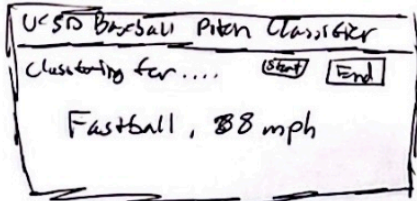 UCSD Baseball Pitch Classifier
Classifying for.... Start End
Fastball, 88 mph